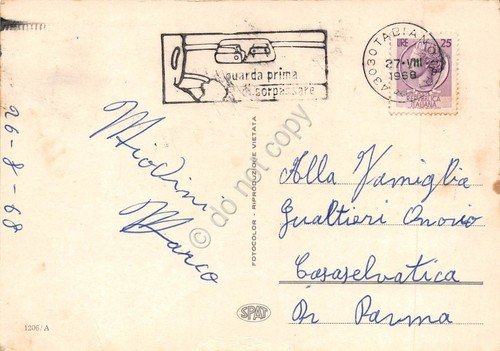 43030 TABIANO
27·VIII
1968
LIRE 25
REPUBBLICA
ITALIANA
guarda prima
di sorpassare
26-8-68
Miodini
Marco
Alla Famiglia
Gualtieri Onorio
Casaselvatica
Pr Parma
FOTOCOLOR - RIPRODUZIONE VIETATA
do not copy
SPAT
1206/A